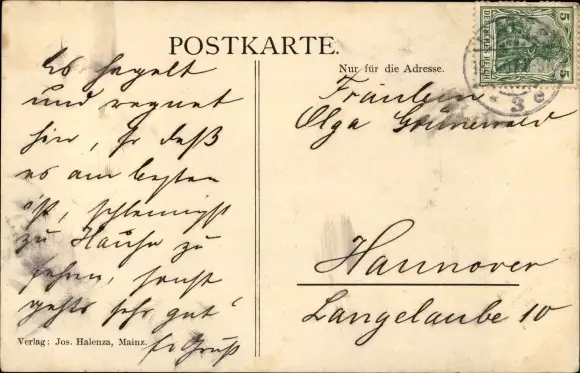 POSTKARTE.
Es hagelt
und regnet
hier, so daß
es am besten
ist, schleunigst
zu Hause zu
gehts sehr gut
Gruß
Verlag: Jos. Halenza, Mainz.
Nur für die Adresse.
Fräulein
Olga Grünewald
Hannover
Langelaube 10
DEUTSCHES REICH
5
5
* 3 e